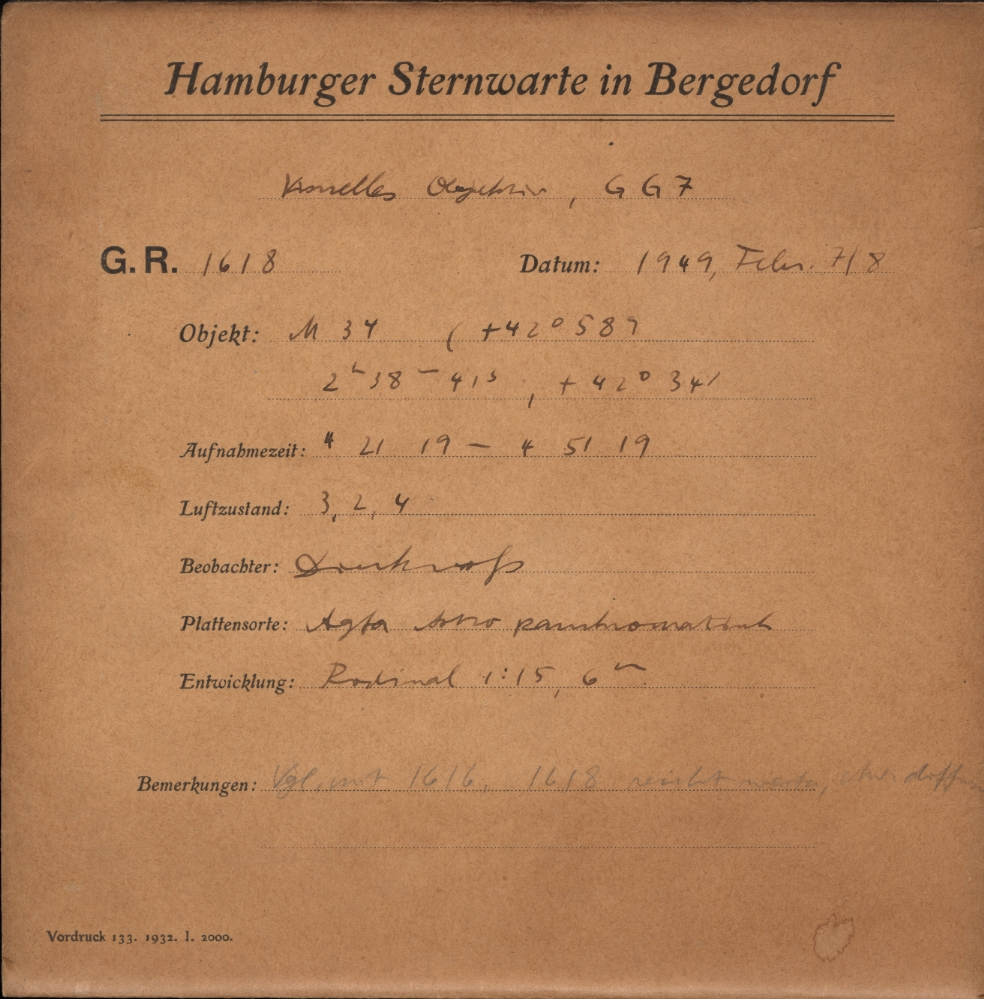 Hamburger Sternwarte in Bergedorf
Visuelles Objektiv, G G 7
G. R. 1618 Datum: 1949, Febr. 7/8
Objekt: M 34 ( +42° 589
2ʰ 38ᵐ 41ˢ, +42° 34'
Aufnahmezeit: 4 21 19 — 4 51 19
Luftzustand: 3, 2, 4
Beobachter:
Plattensorte: Agfa Astro panchromatisch
Entwicklung: Rodinal 1:15, 6ᵐ
Bemerkungen: Vgl. mit 1616. 1618 reicht
Vordruck 133. 1932. I. 2000.